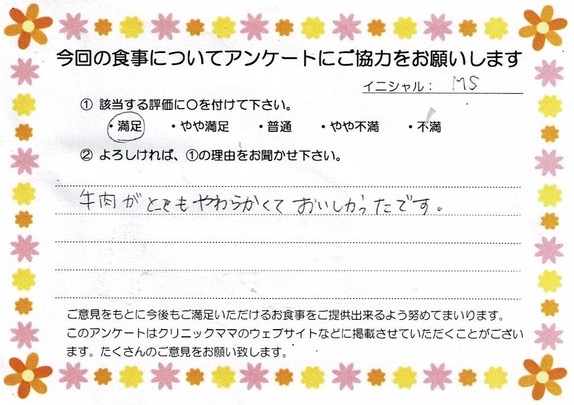 今回の食事についてアンケートにご協力をお願いします
イニシャル： MS
① 該当する評価に〇を付けて下さい。
・満足 ・やや満足 ・普通 ・やや不満 ・不満
② よろしければ、①の理由をお聞かせ下さい。
牛肉がとてもやわらかくておいしかったです。
ご意見をもとに今後もご満足いただけるお食事をご提供出来るよう努めてまいります。
このアンケートはクリニックママのウェブサイトなどに掲載させていただくことがござい
ます。たくさんのご意見をお願い致します。